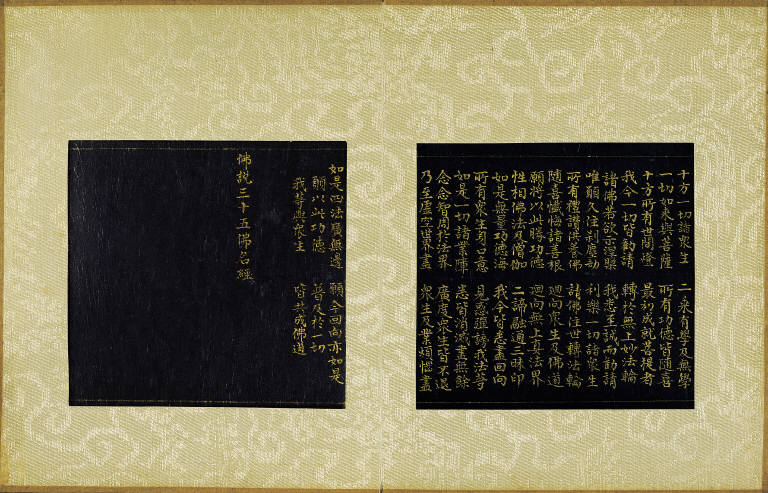 十方一切諸衆生 二乘有學及無學
一切如來與菩薩 所有功德皆隨喜
十方所有世間燈 最初成就菩提者
我今一切皆勸請 轉於無上妙法輪
諸佛若欲示涅槃 我悉至誠而勸請
唯願久住剎塵劫 利樂一切諸衆生
所有禮讚供養佛 請佛住世轉法輪
隨喜懺悔諸善根 迴向衆生及佛道
願將以此勝功德 迴向無上真法界
性相佛法及僧伽 二諦融通三昧印
如是無量功德海 我今皆悉盡回向
所有衆生身口意 見惑彈謗我法等
如是一切諸業障 悉皆消滅盡無餘
念念智周於法界 廣度衆生皆不退
乃至虛空世界盡 衆生及業煩惱盡
如是四法廣無邊 願今回向亦如是
願以此功德 普及於一切
我等與衆生 皆共成佛道
佛說三十五佛名經